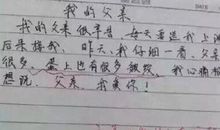 我的父亲
我的父亲很辛苦，每天要送我上
后来接我。昨天，我仔细一看，父亲
很多，脸上也有很多皱纹，我心痛
想说，父亲，我爱你！